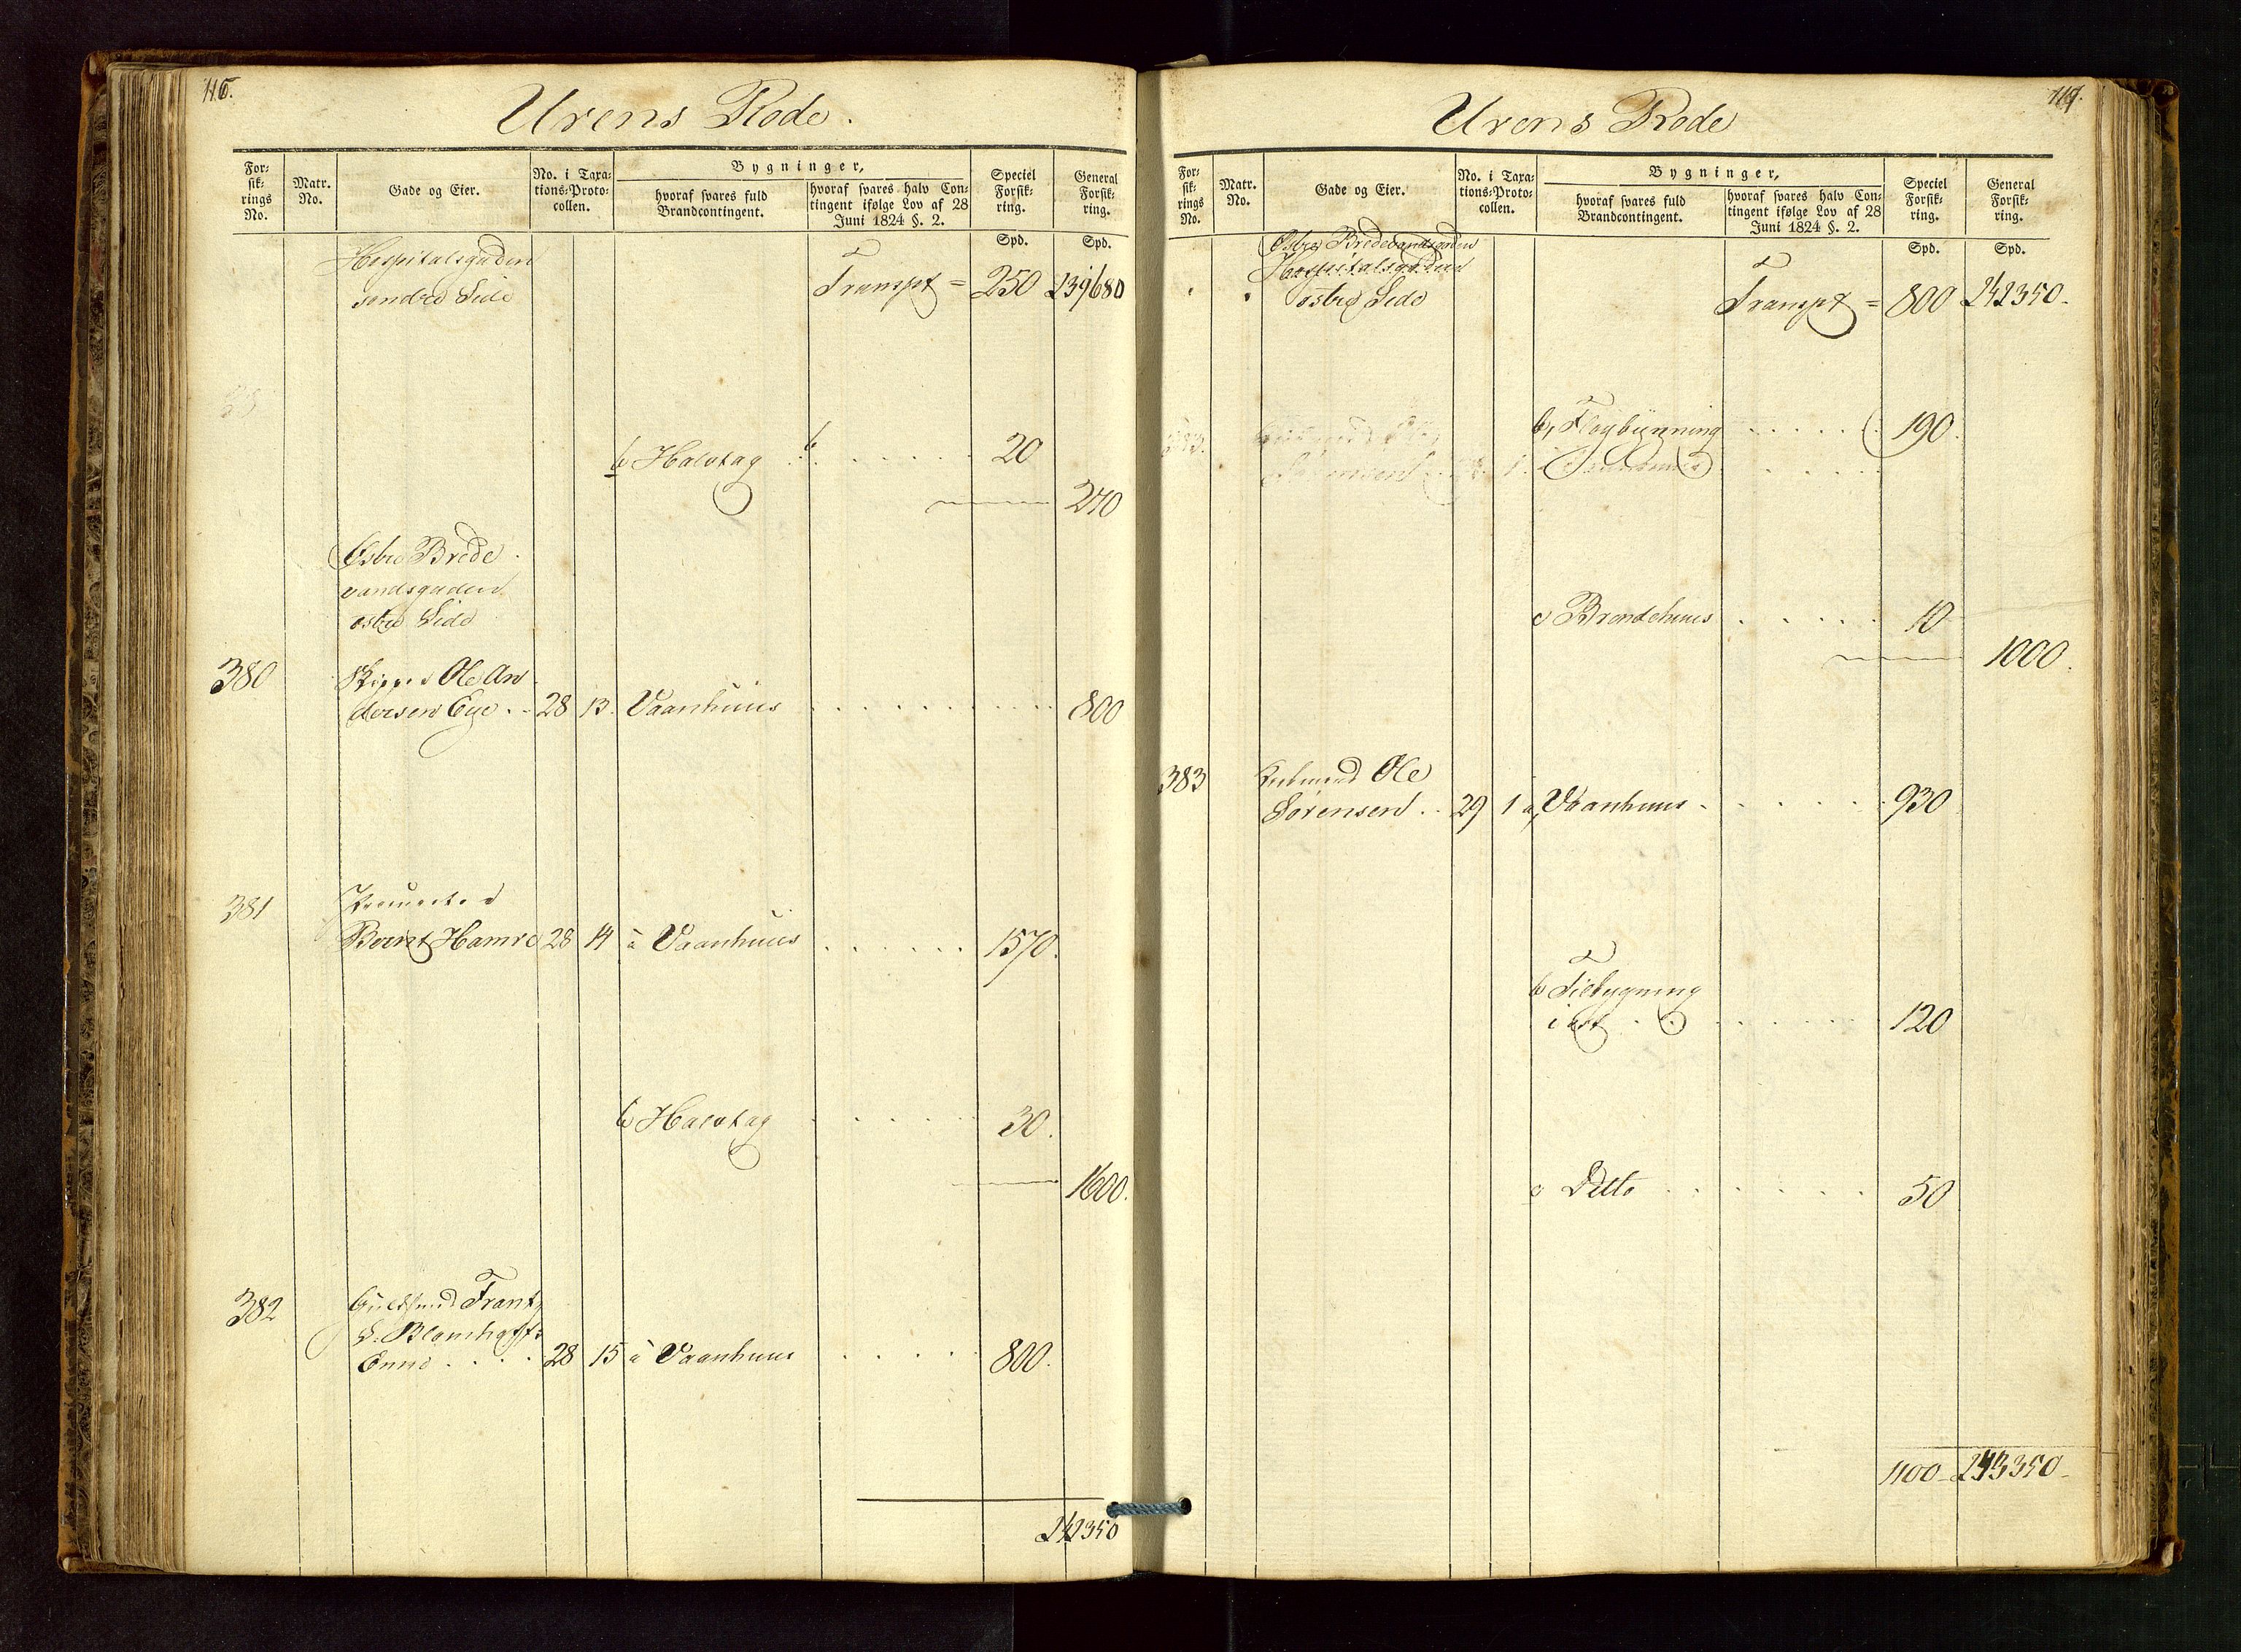 116.
Urens Rode.
For-
sik-
rings
No.
Matr.
No.
Gade og Eier.
No. i Taxa-
tions-Proto-
collen.
Bygninger,
hvoraf svares fuld
Brandcontingent.
hvoraf svares halv Con-
tingent ifølge Lov af 28
Juni 1824 §. 2.
Speciel
Forsik-
ring.
General
Forsik-
ring.
Spd. Spd.
Hospitalsgaden
søndre Side Transpt = 250 239680
b Halvtag 20
270
Østre Brede
vandsgaden
østre Side
380 Skipper Ole An
dersen Eye 28 13 Vaanhuus 800
381
Berent Hamre 28 14 a Vaanhuus 1570.
b Halvtag 30.
1600.
382 Guldsmed Frantz
Enke 28 15 a Vaanhuus 800.
242350
117.
Urens Rode
For-
sik-
rings
No.
Matr.
No.
Gade og Eier.
No. i Taxa-
tions-Proto-
collen.
Bygninger,
hvoraf svares fuld
Brandcontingent.
hvoraf svares halv Con-
tingent ifølge Lov af 28
Juni 1824 §. 2.
Speciel
Forsik-
ring.
General
Forsik-
ring.
Spd. Spd.
Østre Bredevandsgaden
Hospitalsgaden
østre Side Transpt = 800 242350.
b, Fløybygning 190.
c Brendehuus 10
1000.
383 Ole
Sørensen 29 1 a, Vaanhuus 930
b Tilbygning
i øst 120
c Ditto 50
1100 243350